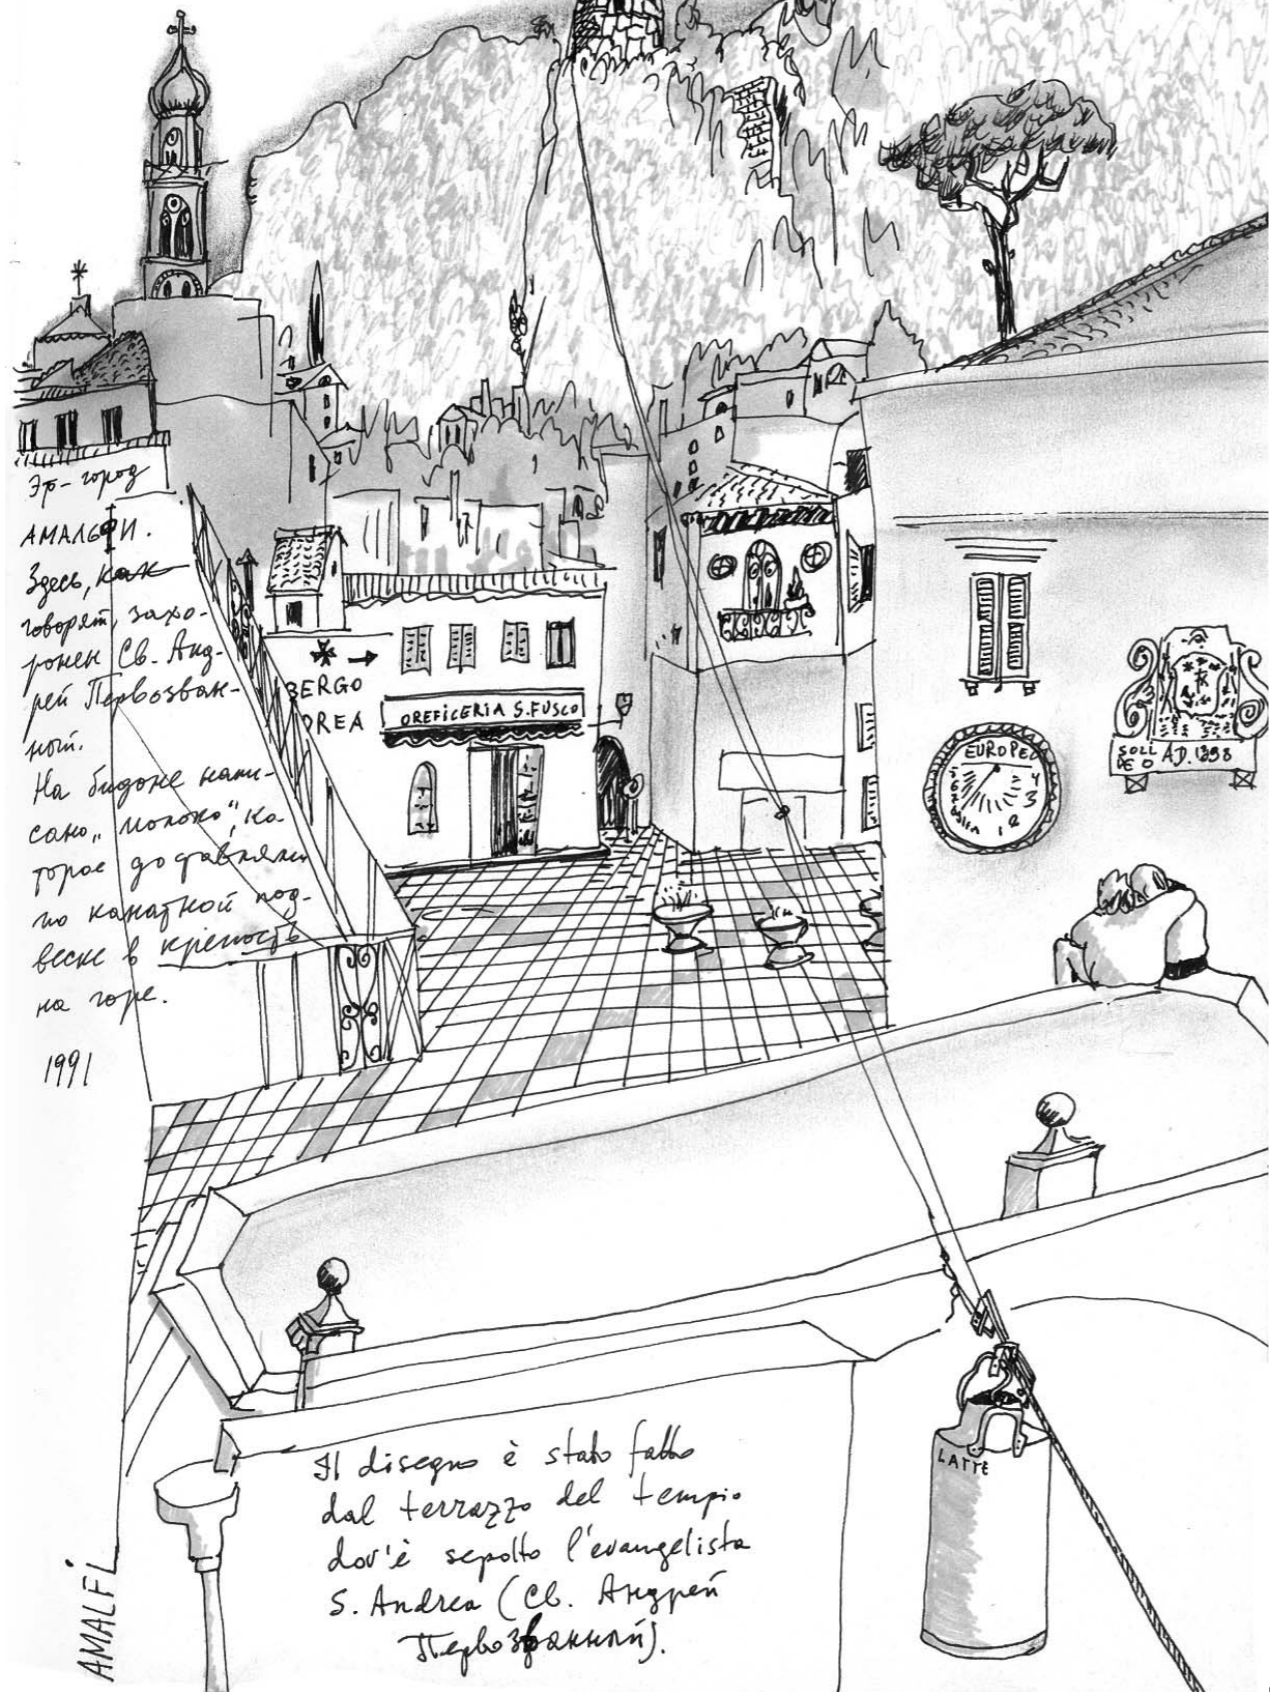 Это - город
АМАЛЬФИ.
Здесь, как
говорят, захо-
ронен Св. Анд-
рей Первозван-
ный.
На бидоне напи-
сано „молоко“, ко-
торое доставляли
по канатной под-
веске в крепость
на горе.
1991
BERGO
DREA
OREFICERIA S. FUSCO
EUROPEO
SOLI
DEO
A.D. 1398
LATTE
Il disegno è stato fatto
dal terrazzo del tempio
dov'è sepolto l'evangelista
S. Andrea (Св. Андрей
Первозванный).
AMALFI